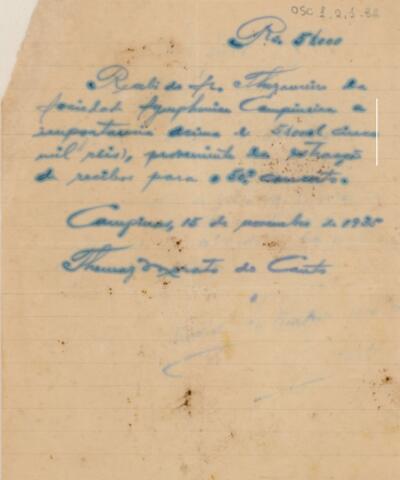 OSC 1.2.1-82
Rs. 5$000
Recebi do Sr. Thezoureiro da
Sociedade Symphonica Campineira a
importancia acima de 5$000 (cinco
mil réis), proveniente da extração
de recibos para o 50º concerto.
Campinas, 15 de novembro de 1935
Thomaz do Canto